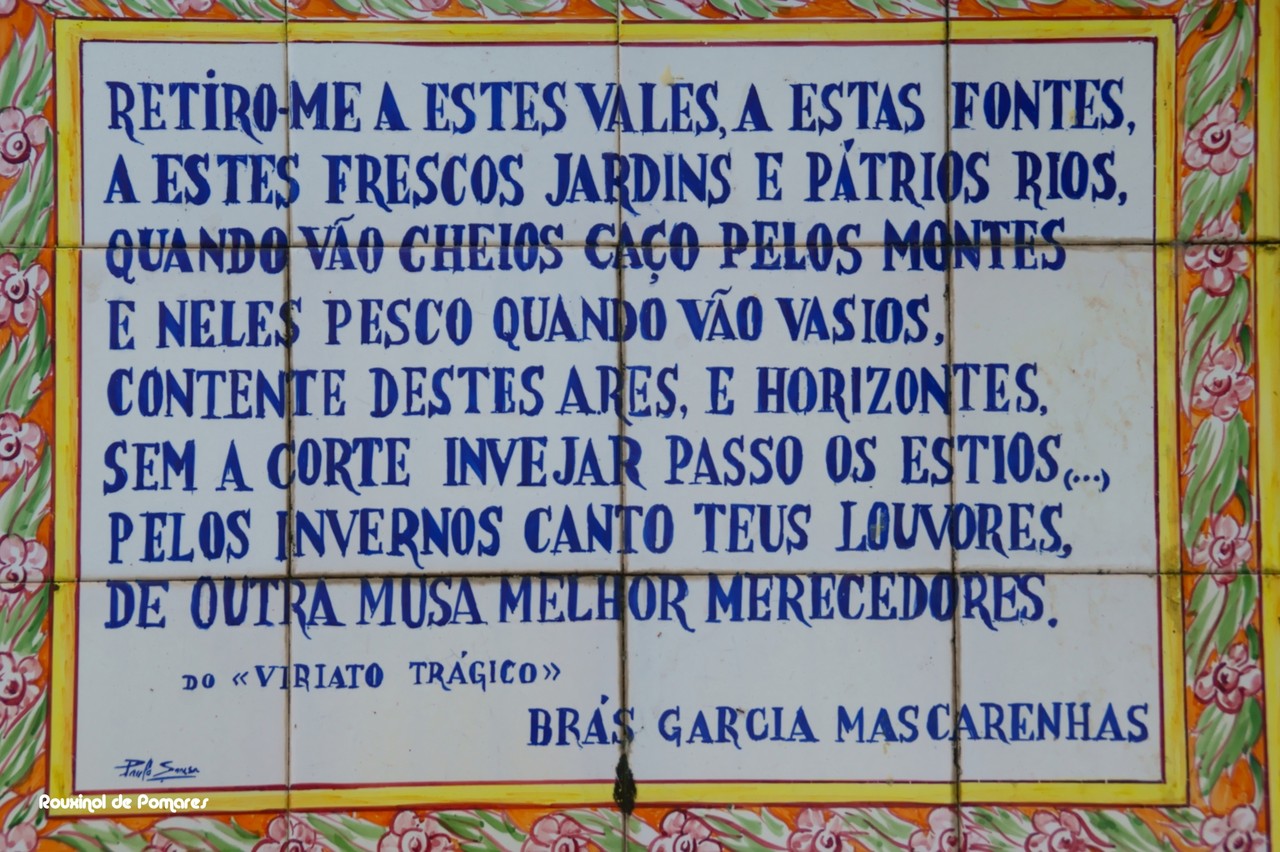 RETIRO-ME A ESTES VALES, A ESTAS FONTES,
A ESTES FRESCOS JARDINS E PÁTRIOS RIOS,
QUANDO VÃO CHEIOS CAÇO PELOS MONTES
E NELES PESCO QUANDO VÃO VASIOS,
CONTENTE DESTES ARES, E HORIZONTES,
SEM A CORTE INVEJAR PASSO OS ESTIOS (...)
PELOS INVERNOS CANTO TEUS LOUVORES,
DE OUTRA MUSA MELHOR MERECEDORES.
DO «VIRIATO TRÁGICO»
BRÁS GARCIA MASCARENHAS
Paulo Sousa
Rouxinol de Pomares